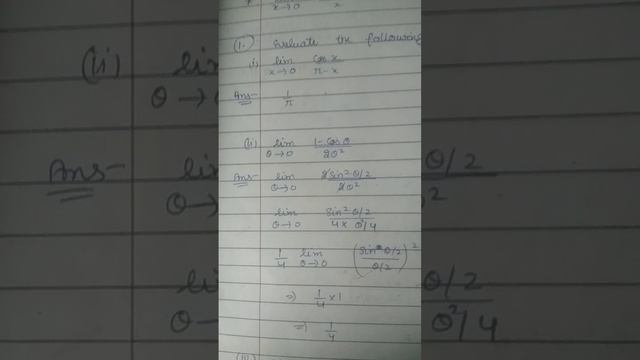 x→0 x
(1. Evaluate the following
(i) lim x→0 cos x / π-x
Ans- 1/π
(ii) lim θ→0 1-cosθ / 2θ²
Ans- lim θ→0 2sin²θ/2 / 2θ²
lim θ→0 sin²θ/2 / 4×θ²/4
1/4 lim θ→0 (sin θ/2 / θ/2)²
⇒ 1/4 ×1
⇒ 1/4
(iii)